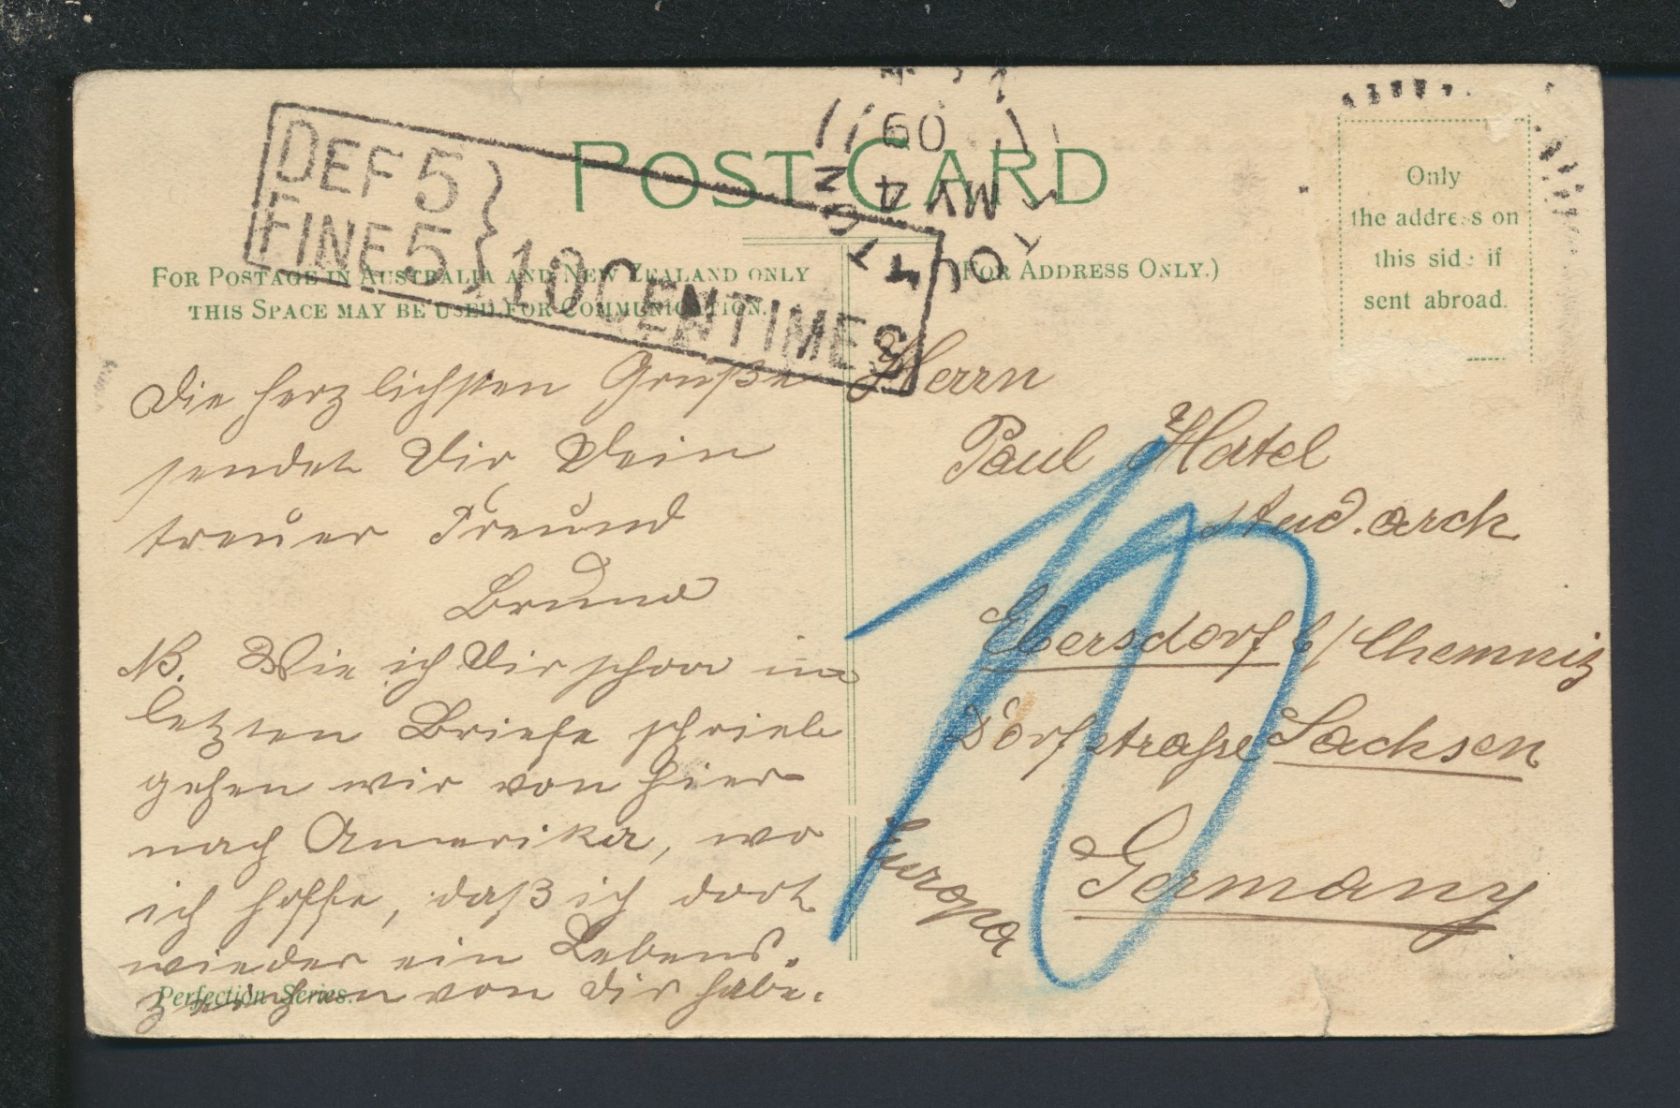 DEF 5
FINE 5
10 CENTIMES
POST CARD
09
MY 4
FOR POSTAGE IN AUSTRALIA AND NEW ZEALAND ONLY
THIS SPACE MAY BE USED FOR COMMUNICATION.
(FOR ADDRESS ONLY.)
Only
the address on
this side if
sent abroad.
Die herzlichsten Grüße
sendet Dir Dein
treuer Freund
Bruno
NB. Wie ich Dir schon im
letzten Briefe schrieb
gehen wir von hier
nach Amerika, wo
ich hoffe, daß ich dort
wieder ein Lebens-
zeichen von Dir habe.
Perfection Series.
Herrn
Paul
stud. arch
Ebersdorf b/Chemnitz
Dorfstraße Sachsen
Germany
Europa
10